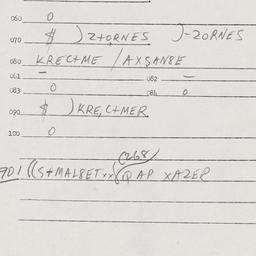 060 0
070 $ ) Z+ORNES )-ZORNES
080 KREC+ME /AXSAN8E
081 – 082 –
083 0 084 0
090 $ ) KRE,C+MER
100 0
(268)
901 ((S+MAL8ET xx (QAP XAZER